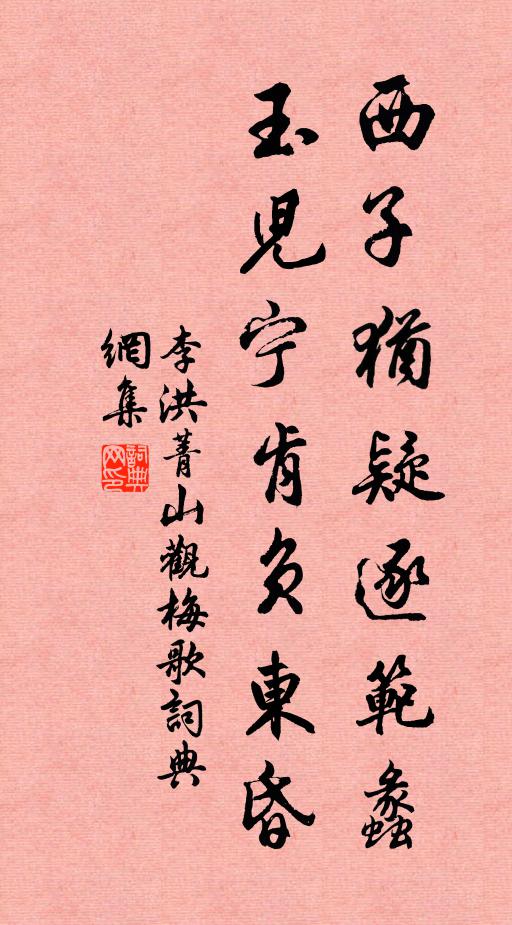 西子猶疑逐範蠡
玉児宁肯负東昏
李洪菁山觀梅歌詞典
網集
詞典网印